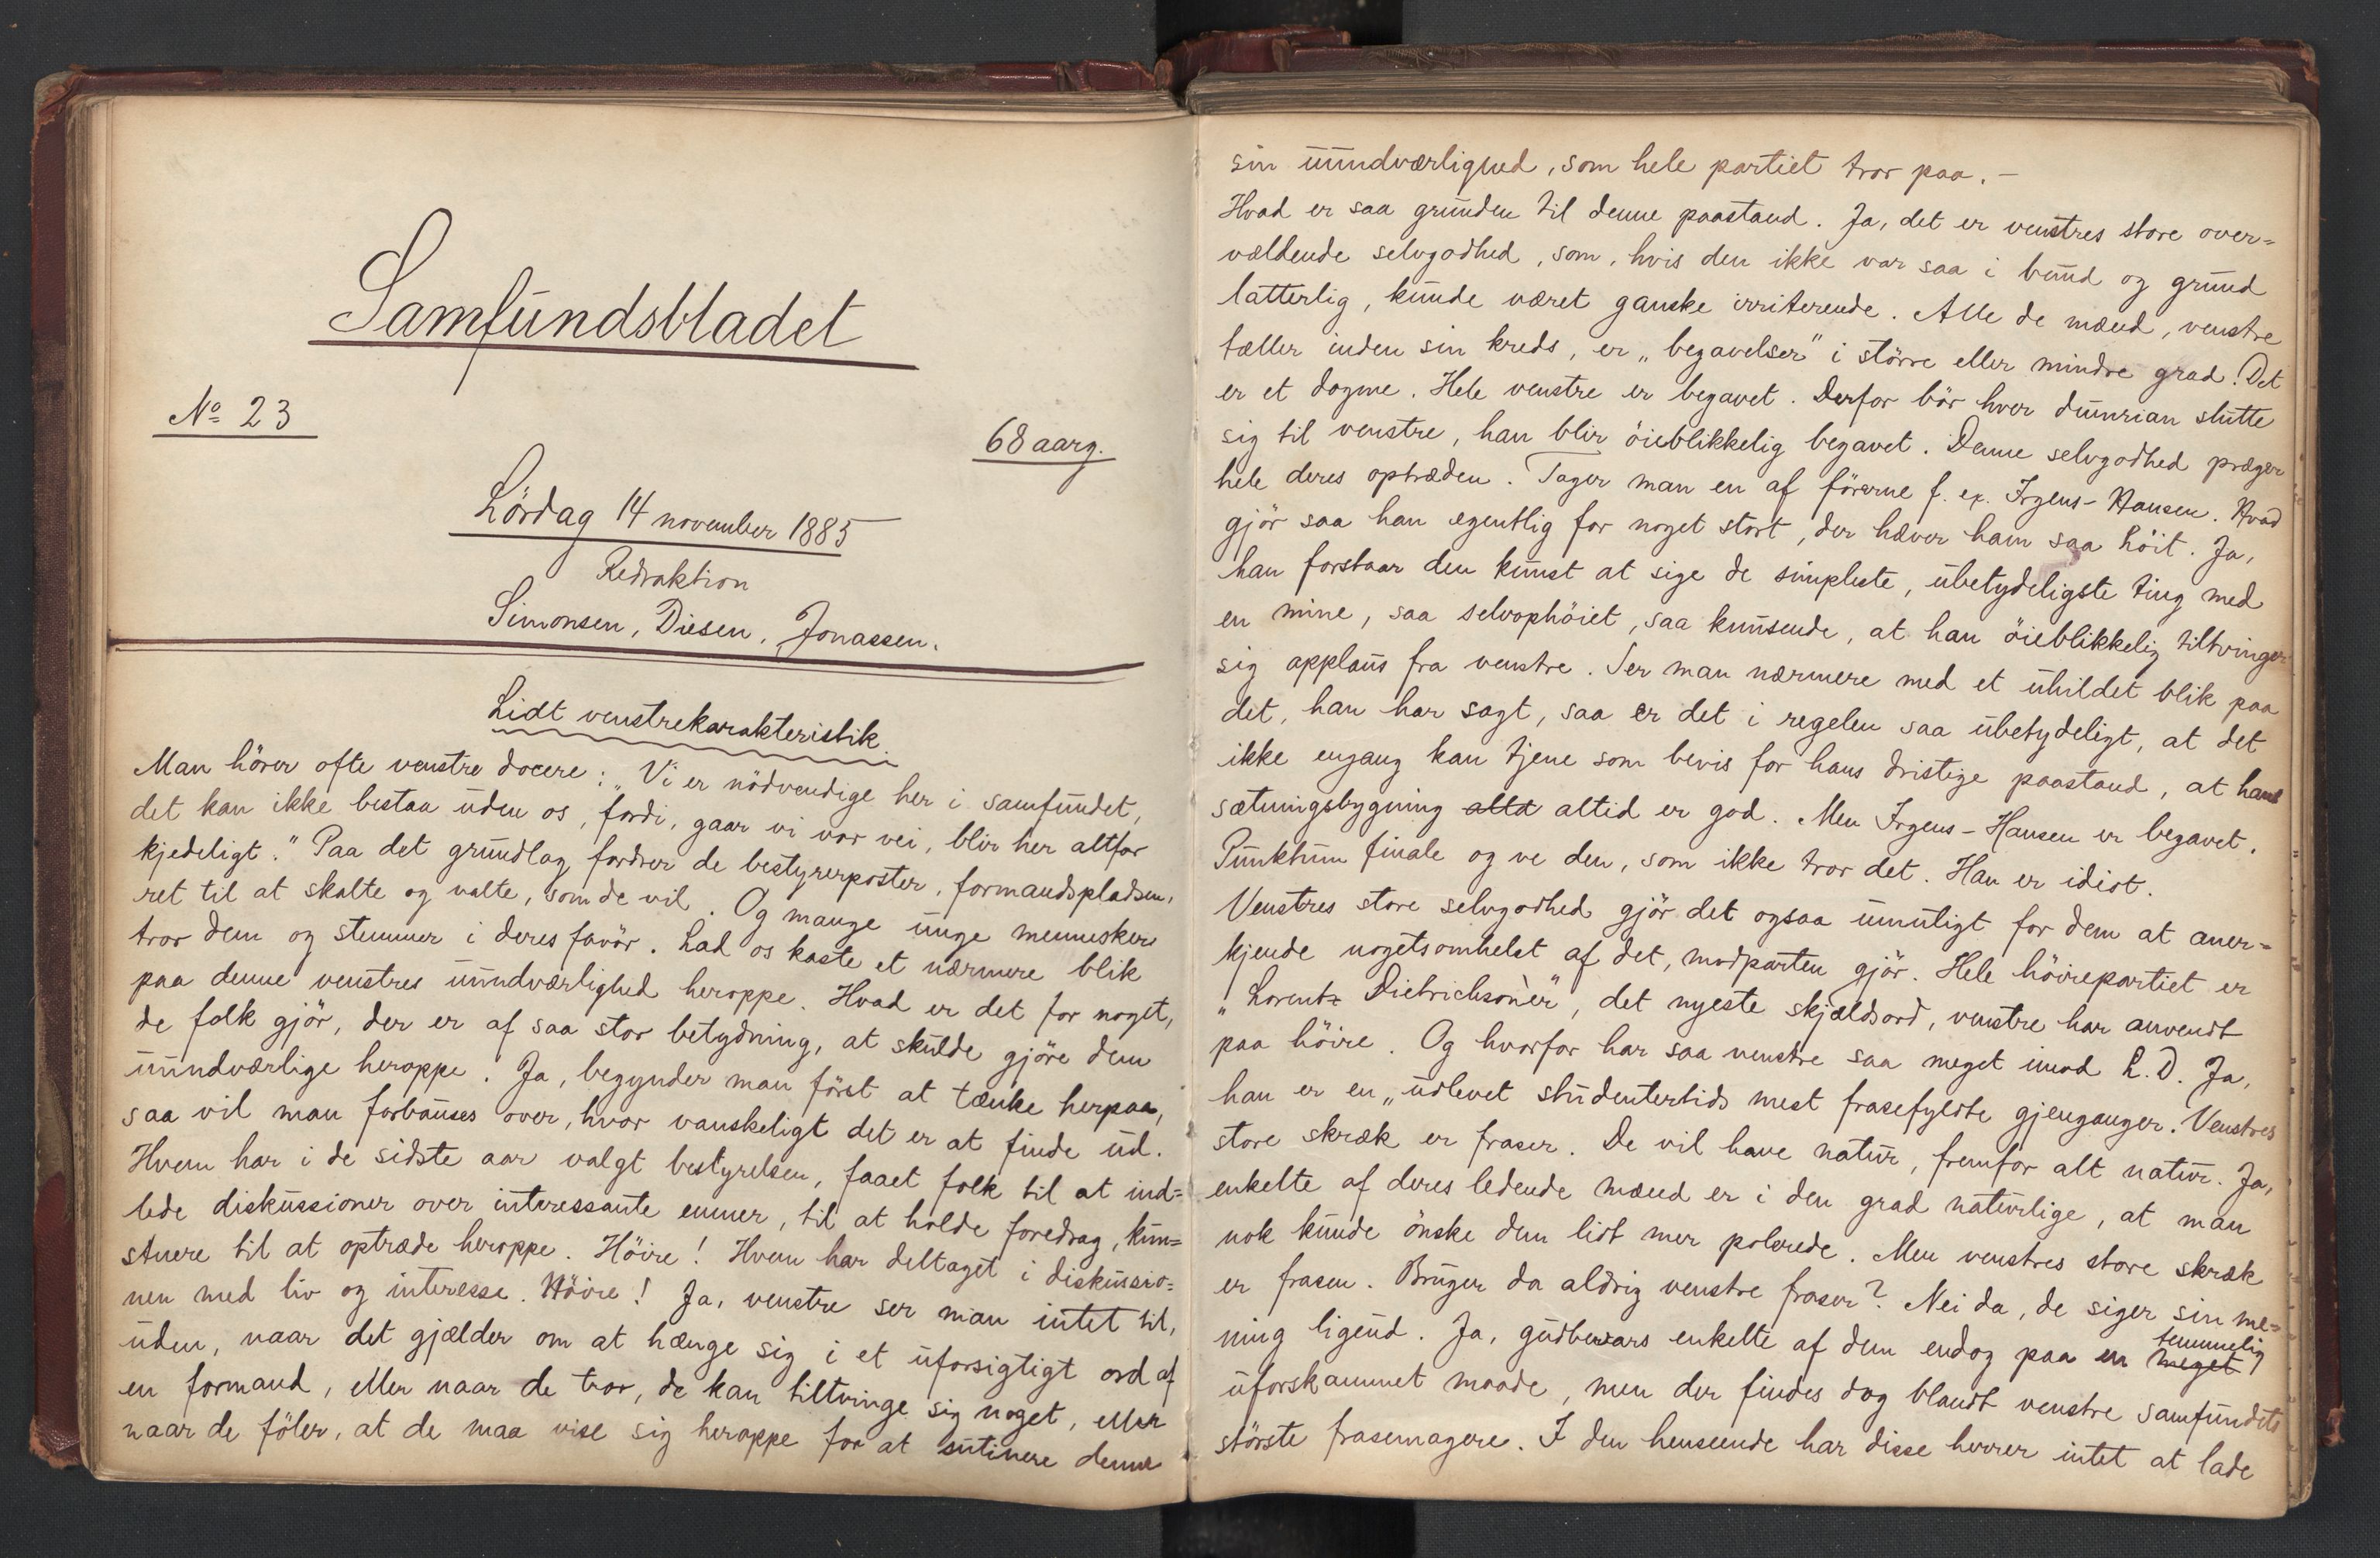 Samfundsbladet
No 23
68 aarg.
Lördag 14 november 1885
Redaktion
Simonsen, Diesen, Jonassen.
Lidt venstrekarakteristik
Man hörer ofte venstre docere: "Vi er nödvendige her i samfundet,
det kan ikke bestaa uden os, fordi, gaar vi vor vei, blir her altfor
kjedeligt." Paa det grundlag fordrer de bestyrerposter, formandspladsen,
ret til at skalte og valte, som de vil. Og mange unge mennesker
tror dem og stemmer i deres favör. Lad os kaste et nærmere blik
paa denne venstres uundværlighed heroppe. Hvad er det for noget,
de folk gjör, der er af saa stor betydning, at skulde gjöre dem
uundværlige heroppe. Ja, begynder man först at tænke herpaa,
saa vil man forbauses over, hvor vanskeligt det er at finde ud.
Hvem har i de sidste aar valgt bestyrelsen, faaet folk til at ind=
lede diskussioner over interessante emner, til at holde foredrag, kun=
stnere til at optræde heroppe. Höire! Hvem har deltaget i diskussio=
nen med liv og interesse. Höire! Ja, venstre ser man intet til,
uden, naar det gjælder om at hænge sig i et uforsigtigt ord af
en formand, eller naar de tror, de kan tiltvinge sig noget, eller
naar de föler, at de maa vise sig heroppe for at sutinere denne
sin uundværlighed, som hele partiet tror paa. –
Hvad er saa grunden til denne paastand. Ja, det er venstres store over=
vældende selvgodhed, som, hvis den ikke var saa i bund og grund
latterlig, kunde været ganske irriterende. Alle de mænd, venstre
tæller inden sin kreds, er „begavelser" i större eller mindre grad. Det
er et dogme. Hele venstre er begavet. Derfor bör hver dumrian slutte
sig til venstre, han blir öieblikkelig begavet. Denne selvgodhed præger
hele deres optræden. Tager man en af förerne f. ex. Irgens-Hansen. Hvad
gjör saa han egentlig for noget stort, der hæver ham saa höit. Ja,
han forstaar den kunst at sige de simpleste, ubetydeligste ting med
en mine, saa selvophöiet, saa knusende, at han öieblikkelig tiltvinger
sig applaus fra venstre. Ser man nærmere med et uhildet blik paa
det, han har sagt, saa er det i regelen saa ubetydeligt, at det
ikke engang kan tjene som bevis for hans dristige paastand, at hans
sætningsbygning altd altid er god. Men Irgens-Hansen er begavet.
Punktum finale og ve den, som ikke tror det. Han er idiot.
Venstres store selvgodhed gjör det ogsaa umuligt for dem at aner=
kjende nogetsomhelst af det, modparten gjör. Hele höirepartiet er
„Lorentz Dietrichson'er", det nyeste skjældsord, venstre har anvendt
paa höire. Og hvorfor har saa venstre saa meget imod L. D. Ja,
han er en „udlevet studentertids mest frasefyldte gjenganger. Venstres
store skræk er fraser. De vil have natur, fremfor alt natur. Ja,
enkelte af deres ledende mænd er i den grad naturlige, at man
nok kunde önske dem lidt mer polerede. Men venstres store skræk
er frasen. Bruger da aldrig venstre fraser? Nei da, de siger sin me=
ning ligeud. Ja, gudbevars enkelte af dem endog paa en meget temmelig
uforskammet maade, men der findes dog blandt venstre samfundets
störste frasemagere. I den henseende har disse herrer intet at lade